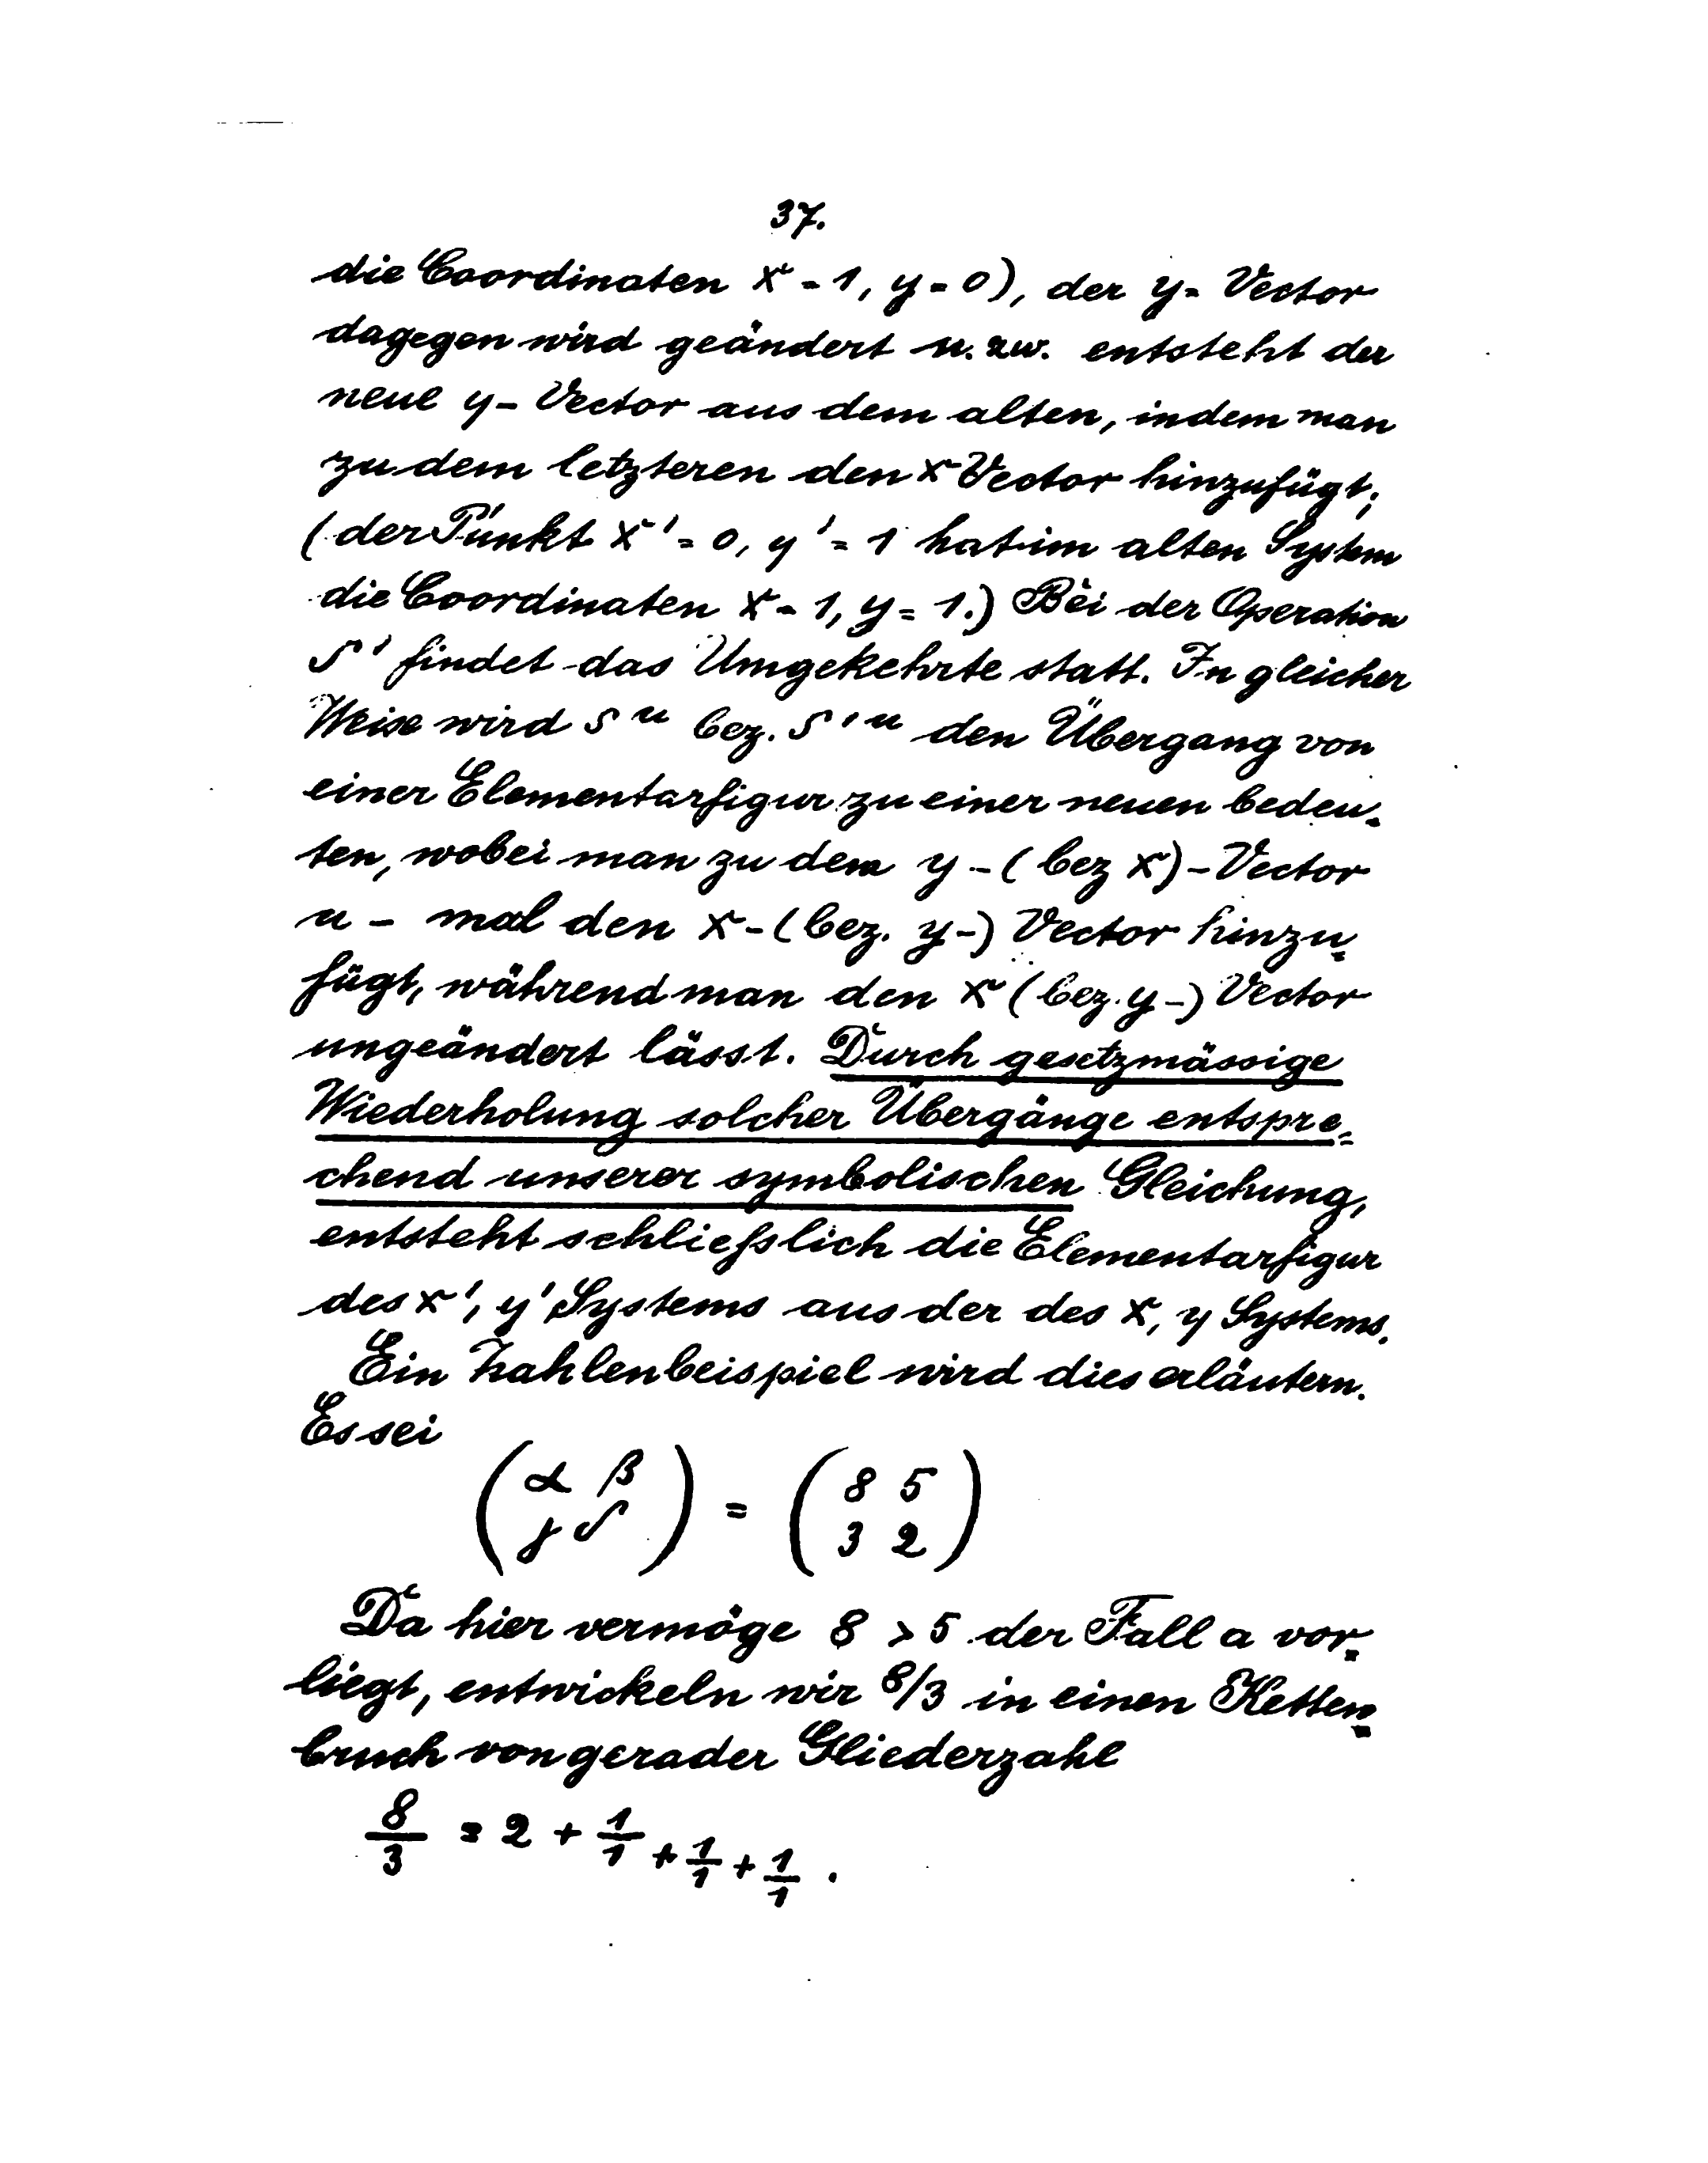 37.
die Coordinaten x = 1, y = 0), der y- Vector
dagegen wird geändert u. zw. entsteht der
neue y- Vector aus dem alten, indem man
zu dem letzteren den x Vector hinzufügt;
(der Punkt x' = 0, y' = 1 hat im alten System
die Coordinaten x = 1, y = 1.) Bei der Operation
S' findet das Umgekehrte statt. In gleicher
Weise wird S^u bez. S'^u den Übergang von
einer Elementarfigur zu einer neuen bedeu-
ten, wobei man zu dem y-(bez x)-Vector
u- mal den x-(bez. y-) Vector hinzu-
fügt, während man den x (bez. y-) Vector
ungeändert lässt. Durch gesetzmässige
Wiederholung solcher Übergänge entspre-
chend unserer symbolischen Gleichung,
entsteht schliefslich die Elementarfigur
des x', y' Systems aus der des x, y Systems.
Ein Zahlenbeispiel wird dies erläutern.
Es sei
(α β
γ δ) = (8 5
3 2)
Da hier vermöge 8 > 5 der Fall a vor-
liegt, entwickeln wir 8/3 in einen Ketten-
bruch von gerader Gliederzahl
8/3 = 2 + 1/1 + 1/1 + 1/1 .